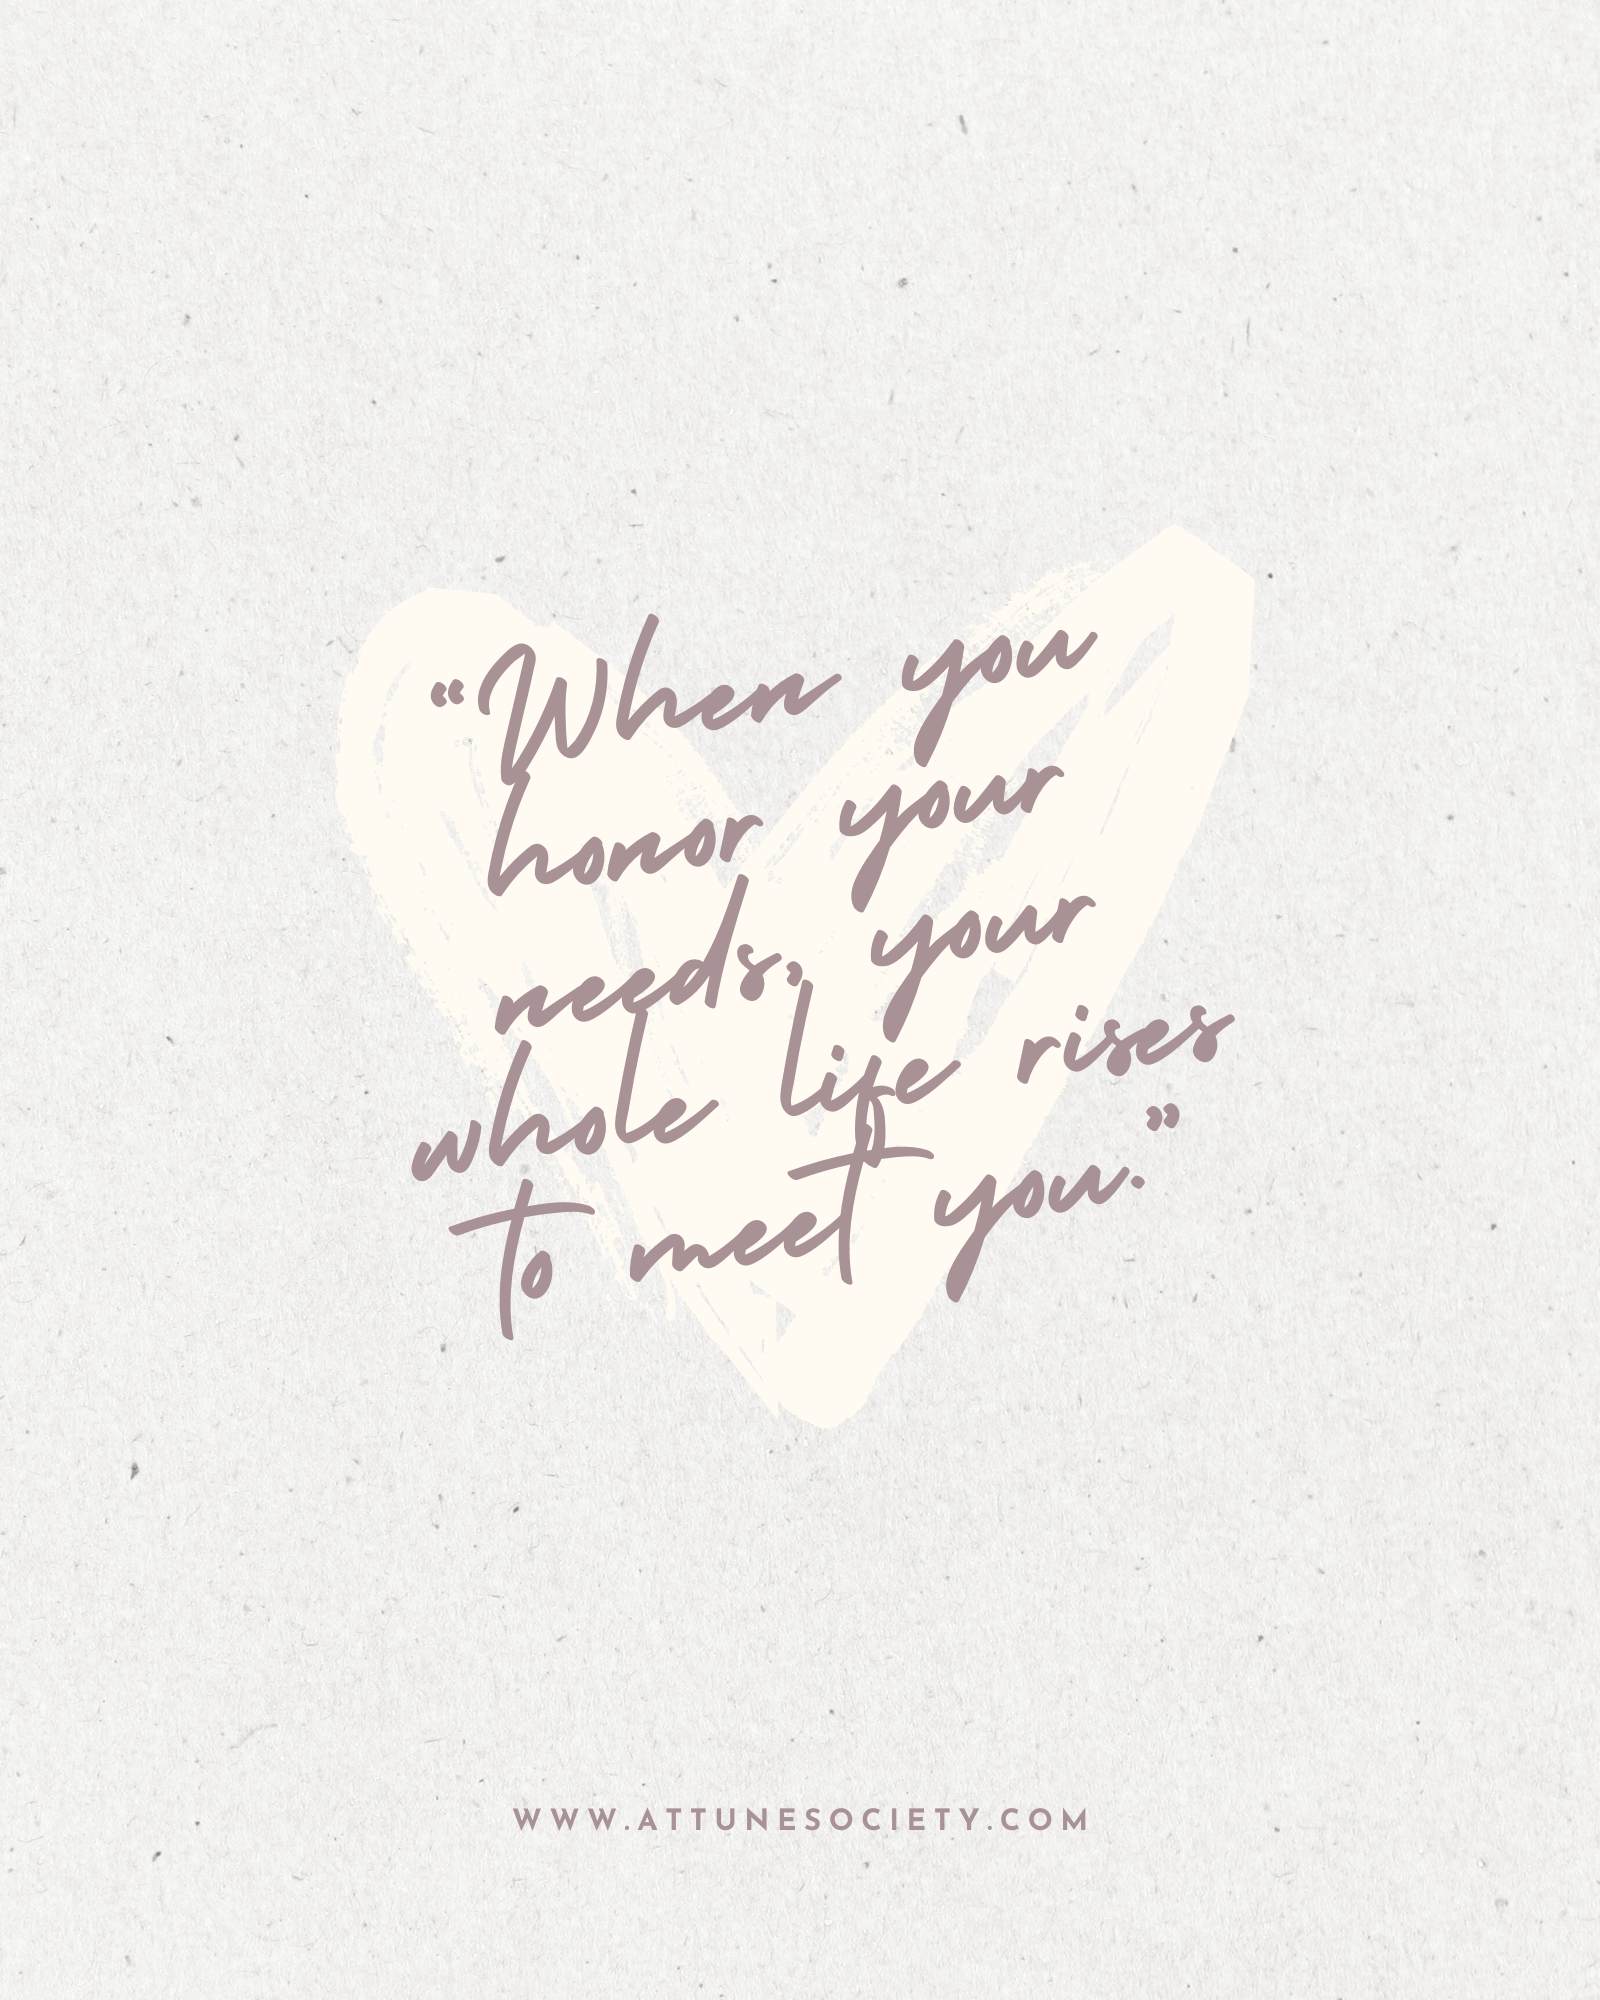 “When you
honor your
needs, your
whole life rises
to meet you.”
WWW.ATTUNESOCIETY.COM